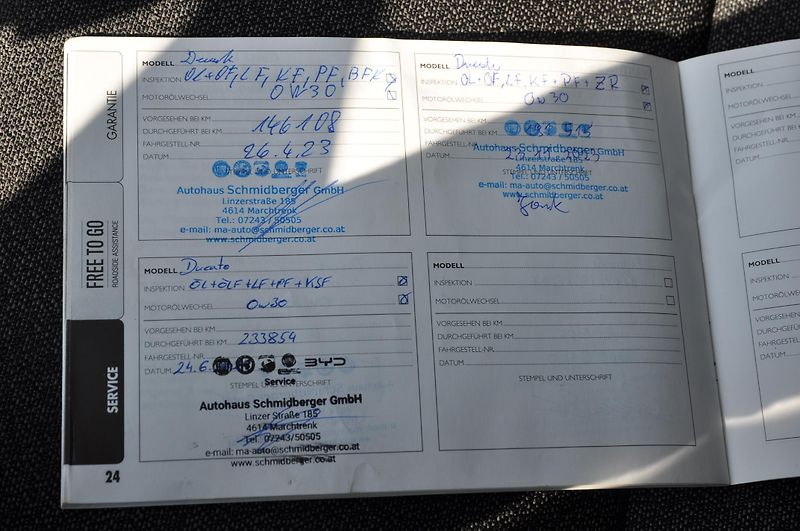 GARANTIE
FREE TO GO
ROADSIDE ASSISTANCE
SERVICE
24
MODELL
INSPEKTION ÖL+ÖF, LF, KF, PF, BFK
MOTORÖLWECHSEL 0W30
VORGESEHEN BEI KM
DURCHGEFÜHRT BEI KM 146108
FAHRGESTELL-NR.
DATUM 26.4.23
STEMPEL UND UNTERSCHRIFT
Autohaus Schmidberger GmbH
Linzerstraße 185
4614 Marchtrenk
Tel.: 07243 / 50505
e-mail: ma-auto@schmidberger.co.at
www.schmidberger.co.at
MODELL Ducato
INSPEKTION ÖL+ÖF, LF, KF+PF+ZR
MOTORÖLWECHSEL 0W30
VORGESEHEN BEI KM
DURCHGEFÜHRT BEI KM
FAHRGESTELL-NR.
DATUM
STEMPEL UND UNTERSCHRIFT
Autohaus Schmidberger GmbH
Linzerstraße 185
4614 Marchtrenk
Tel.: 07243 / 50505
e-mail: ma-auto@schmidberger.co.at
www.schmidberger.co.at
MODELL Ducato
INSPEKTION ÖL+ÖLF+LF+PF+KSF
MOTORÖLWECHSEL 0W30
VORGESEHEN BEI KM
DURCHGEFÜHRT BEI KM 233854
FAHRGESTELL-NR.
DATUM 24.6
BYD
Service
STEMPEL UND UNTERSCHRIFT
Autohaus Schmidberger GmbH
Linzer Straße 185
4614 Marchtrenk
Tel. 07243/50505
e-mail: ma-auto@schmidberger.co.at
www.schmidberger.co.at
MODELL
INSPEKTION
MOTORÖLWECHSEL
VORGESEHEN BEI KM
DURCHGEFÜHRT BEI KM
FAHRGESTELL-NR.
DATUM
STEMPEL UND UNTERSCHRIFT
MODELL
INSPEKTION
MOTORÖLWECHSEL
VORGESEHEN BEI
DURCHGEFÜHRT
FAHRGESTELL-
DATUM
MODELL
INSPEKTION
DATUM